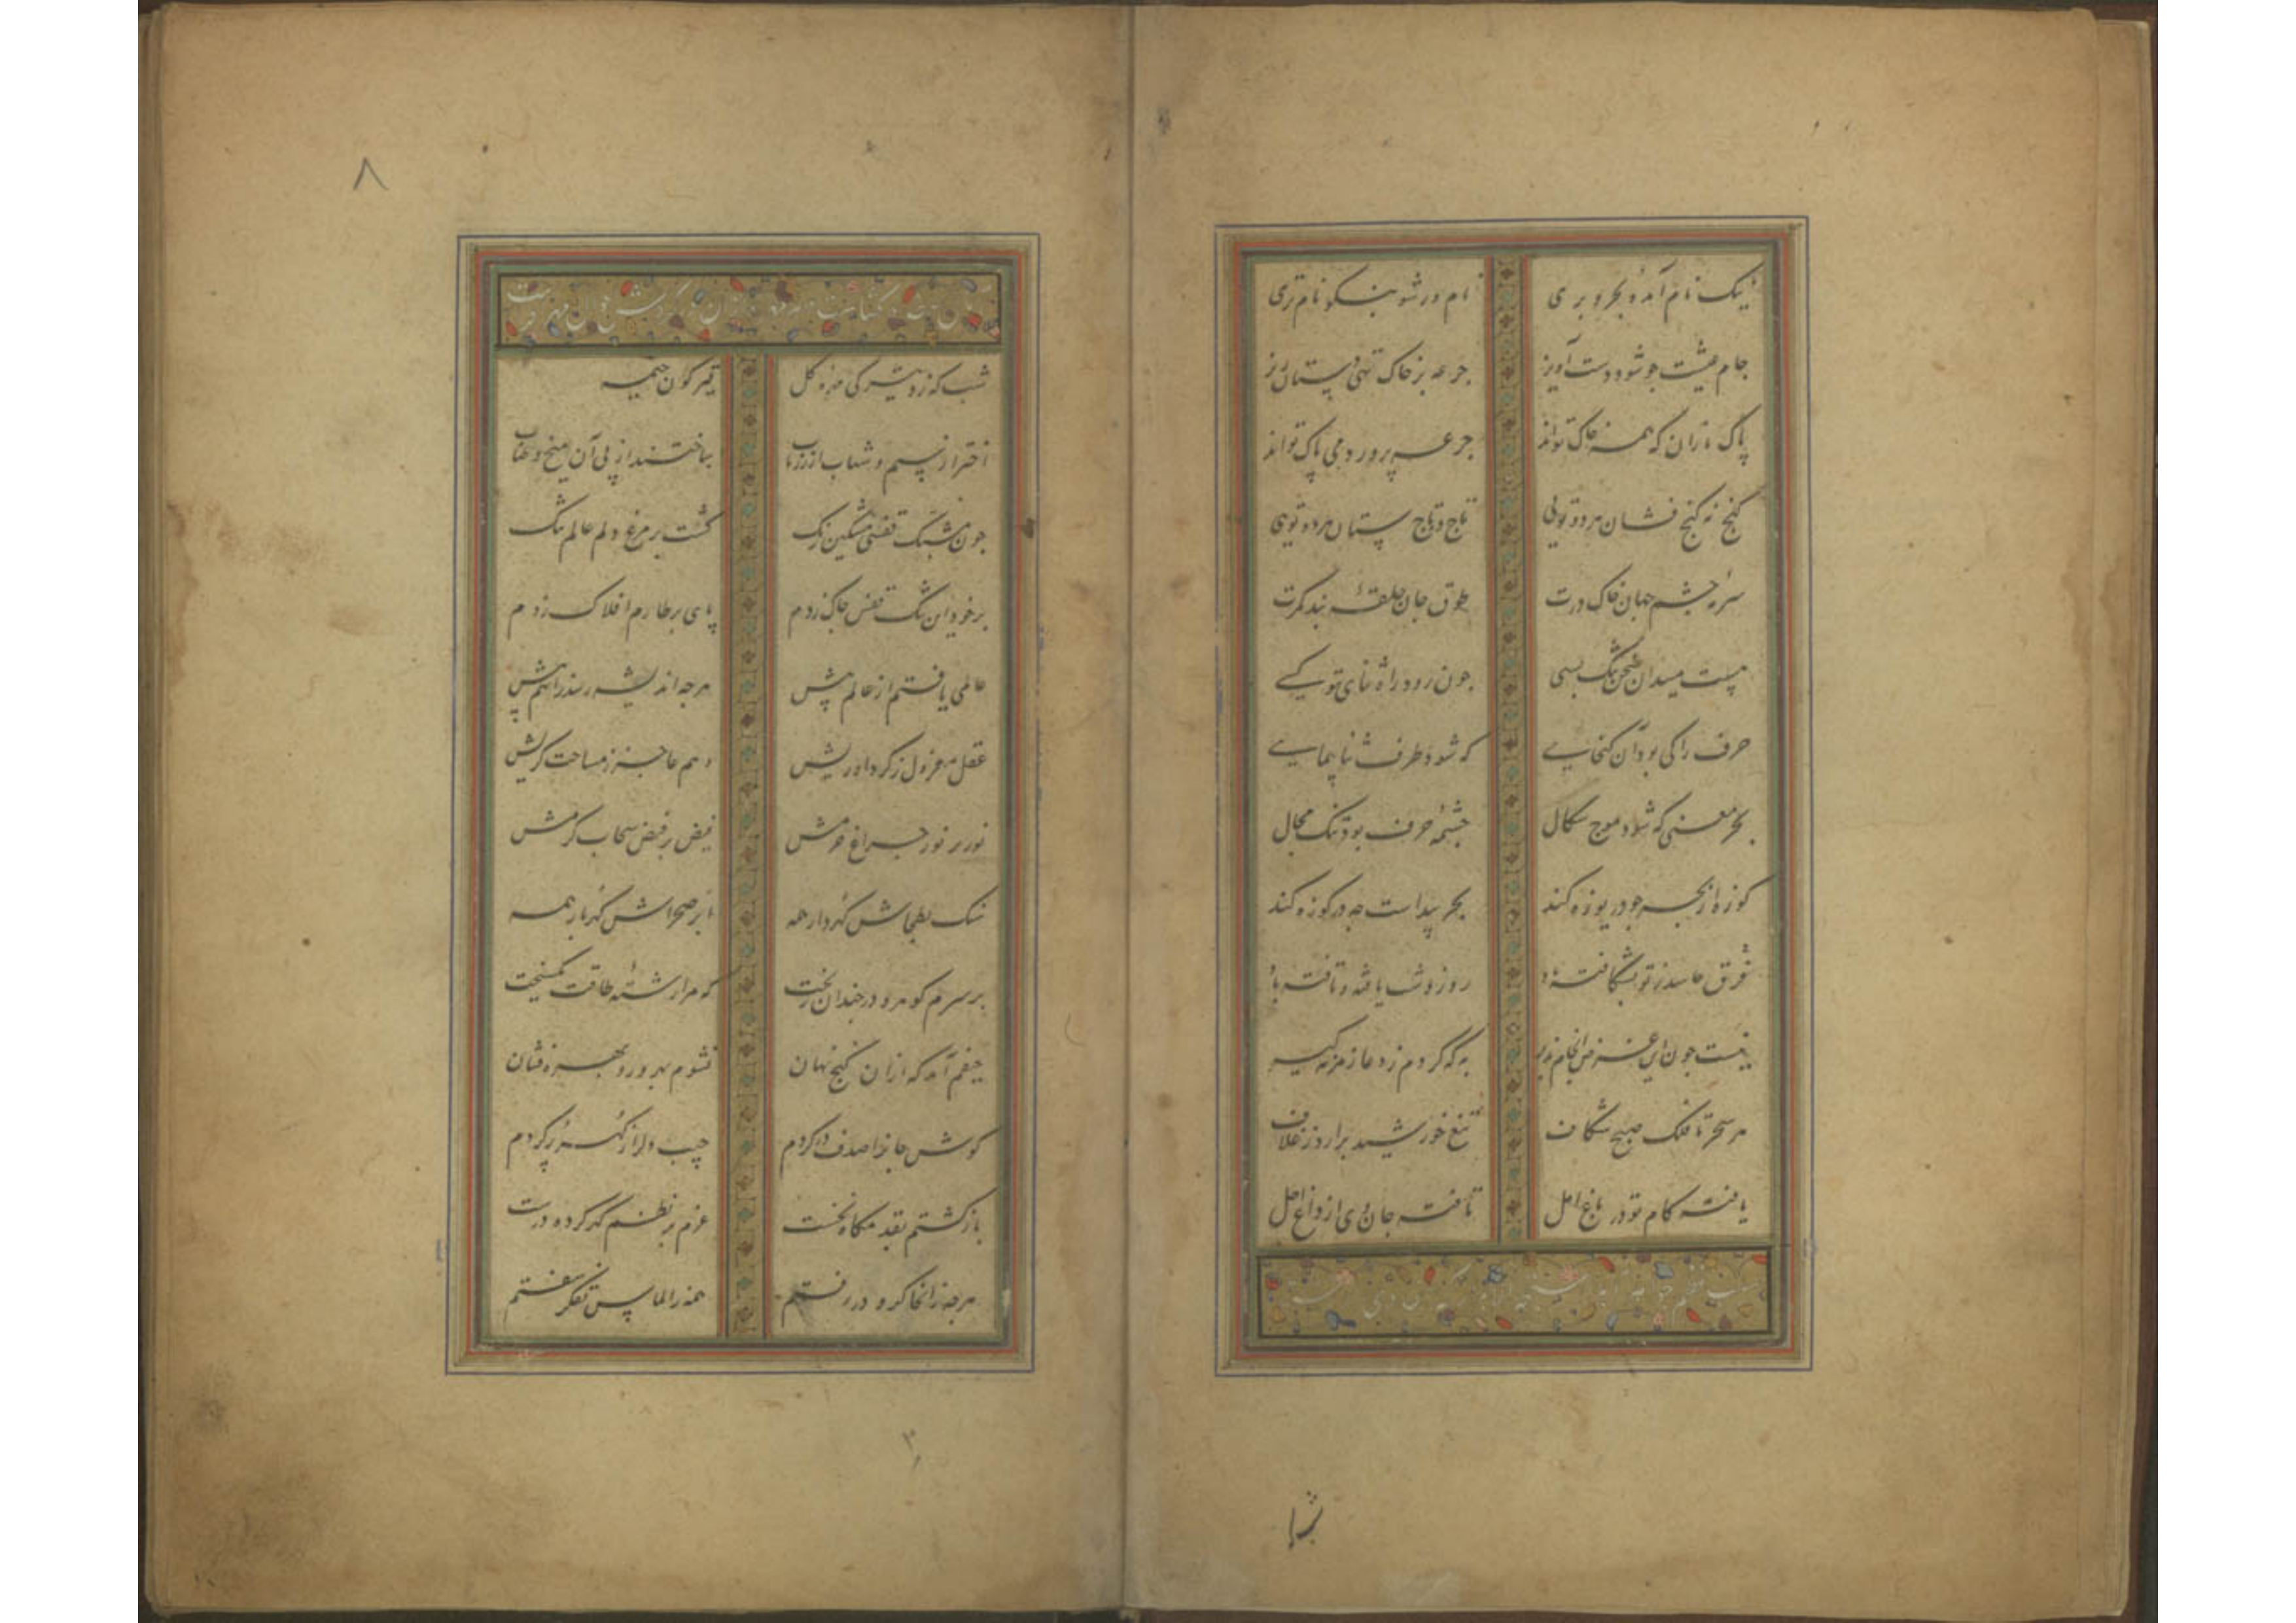 نیک نام آمدهٔ و بحر و بری نام ور شو بنکو نام تری
جام عیشت چو شود دست آویز جرعه بر خاک تهی دستان ریز
پاک بازان که همه خاک تواند جرعه پرورد می پاک تواند
کنج نه کنج فشان هر دو تویی تاج ده تاج ستان هر دو تویی
سرمهٔ چشم جهان خاک درت طوق جان حلقهٔ بند کمرت
هست میدان سخن تنک بسی چون رود راه ثنای تو کسے
حرف را کی بود آن کنجایے که شود ظرف ثنا پیمایے
بحر معنی که شود موج سکال چشمهٔ حرف بود تنک مجال
کوزه از بحر چو دریوزه کند بحر پیداست چه در کوزه کند
فرق حاسد ز تو بشکافته باد روز و شب یافته و تافته باد
نیست چون این غرض انجام پذیر به که کردم ز دعا زمزمه کیر
هر سحر تا فلک صبح شکاف تیغ خورشید برارد ز غلاف
یافته کام تو در باغ امل تافته جان وی از داغ اجل
شب که زد تیرکی مهره کل قیرکون خیمه
اختر از سیم و شهاب از زر ناب ساختند از پی آن میخ و طناب
چون مشبک قفس مشکین رنک کشت بر مرغ دلم عالم تنک
بر خود این تنک قفس چاک زدم پای بر طارم افلاک زدم
عالمی یافتم از عالم پیش هر چه اندیشه رسد زانهم پیش
عقل معزول ز کرد آوریش وهم عاجز ز مساحت کریش
نور بر نور چراغ حرمش فیض بر فیض سحاب کرمش
سنک بطحاش کهردار همه ابر صحراش کهربار همه
بر سرم کوهر و در چندان ریخت که مرا رشتهٔ طاقت بکسیخت
حیفم آمد که از ان کنج نهان نشوم بهره ور و بهره فشان
کوش جانرا صدف در کردم جیب دلرا ز کهر پر کردم
بازکشتم بقدمکاه نخست عزم بر نظم کهر کرده درست
هر چه زانجا کهر و در رفتم همه ز الماس تفکر سفتم
شبا
۸